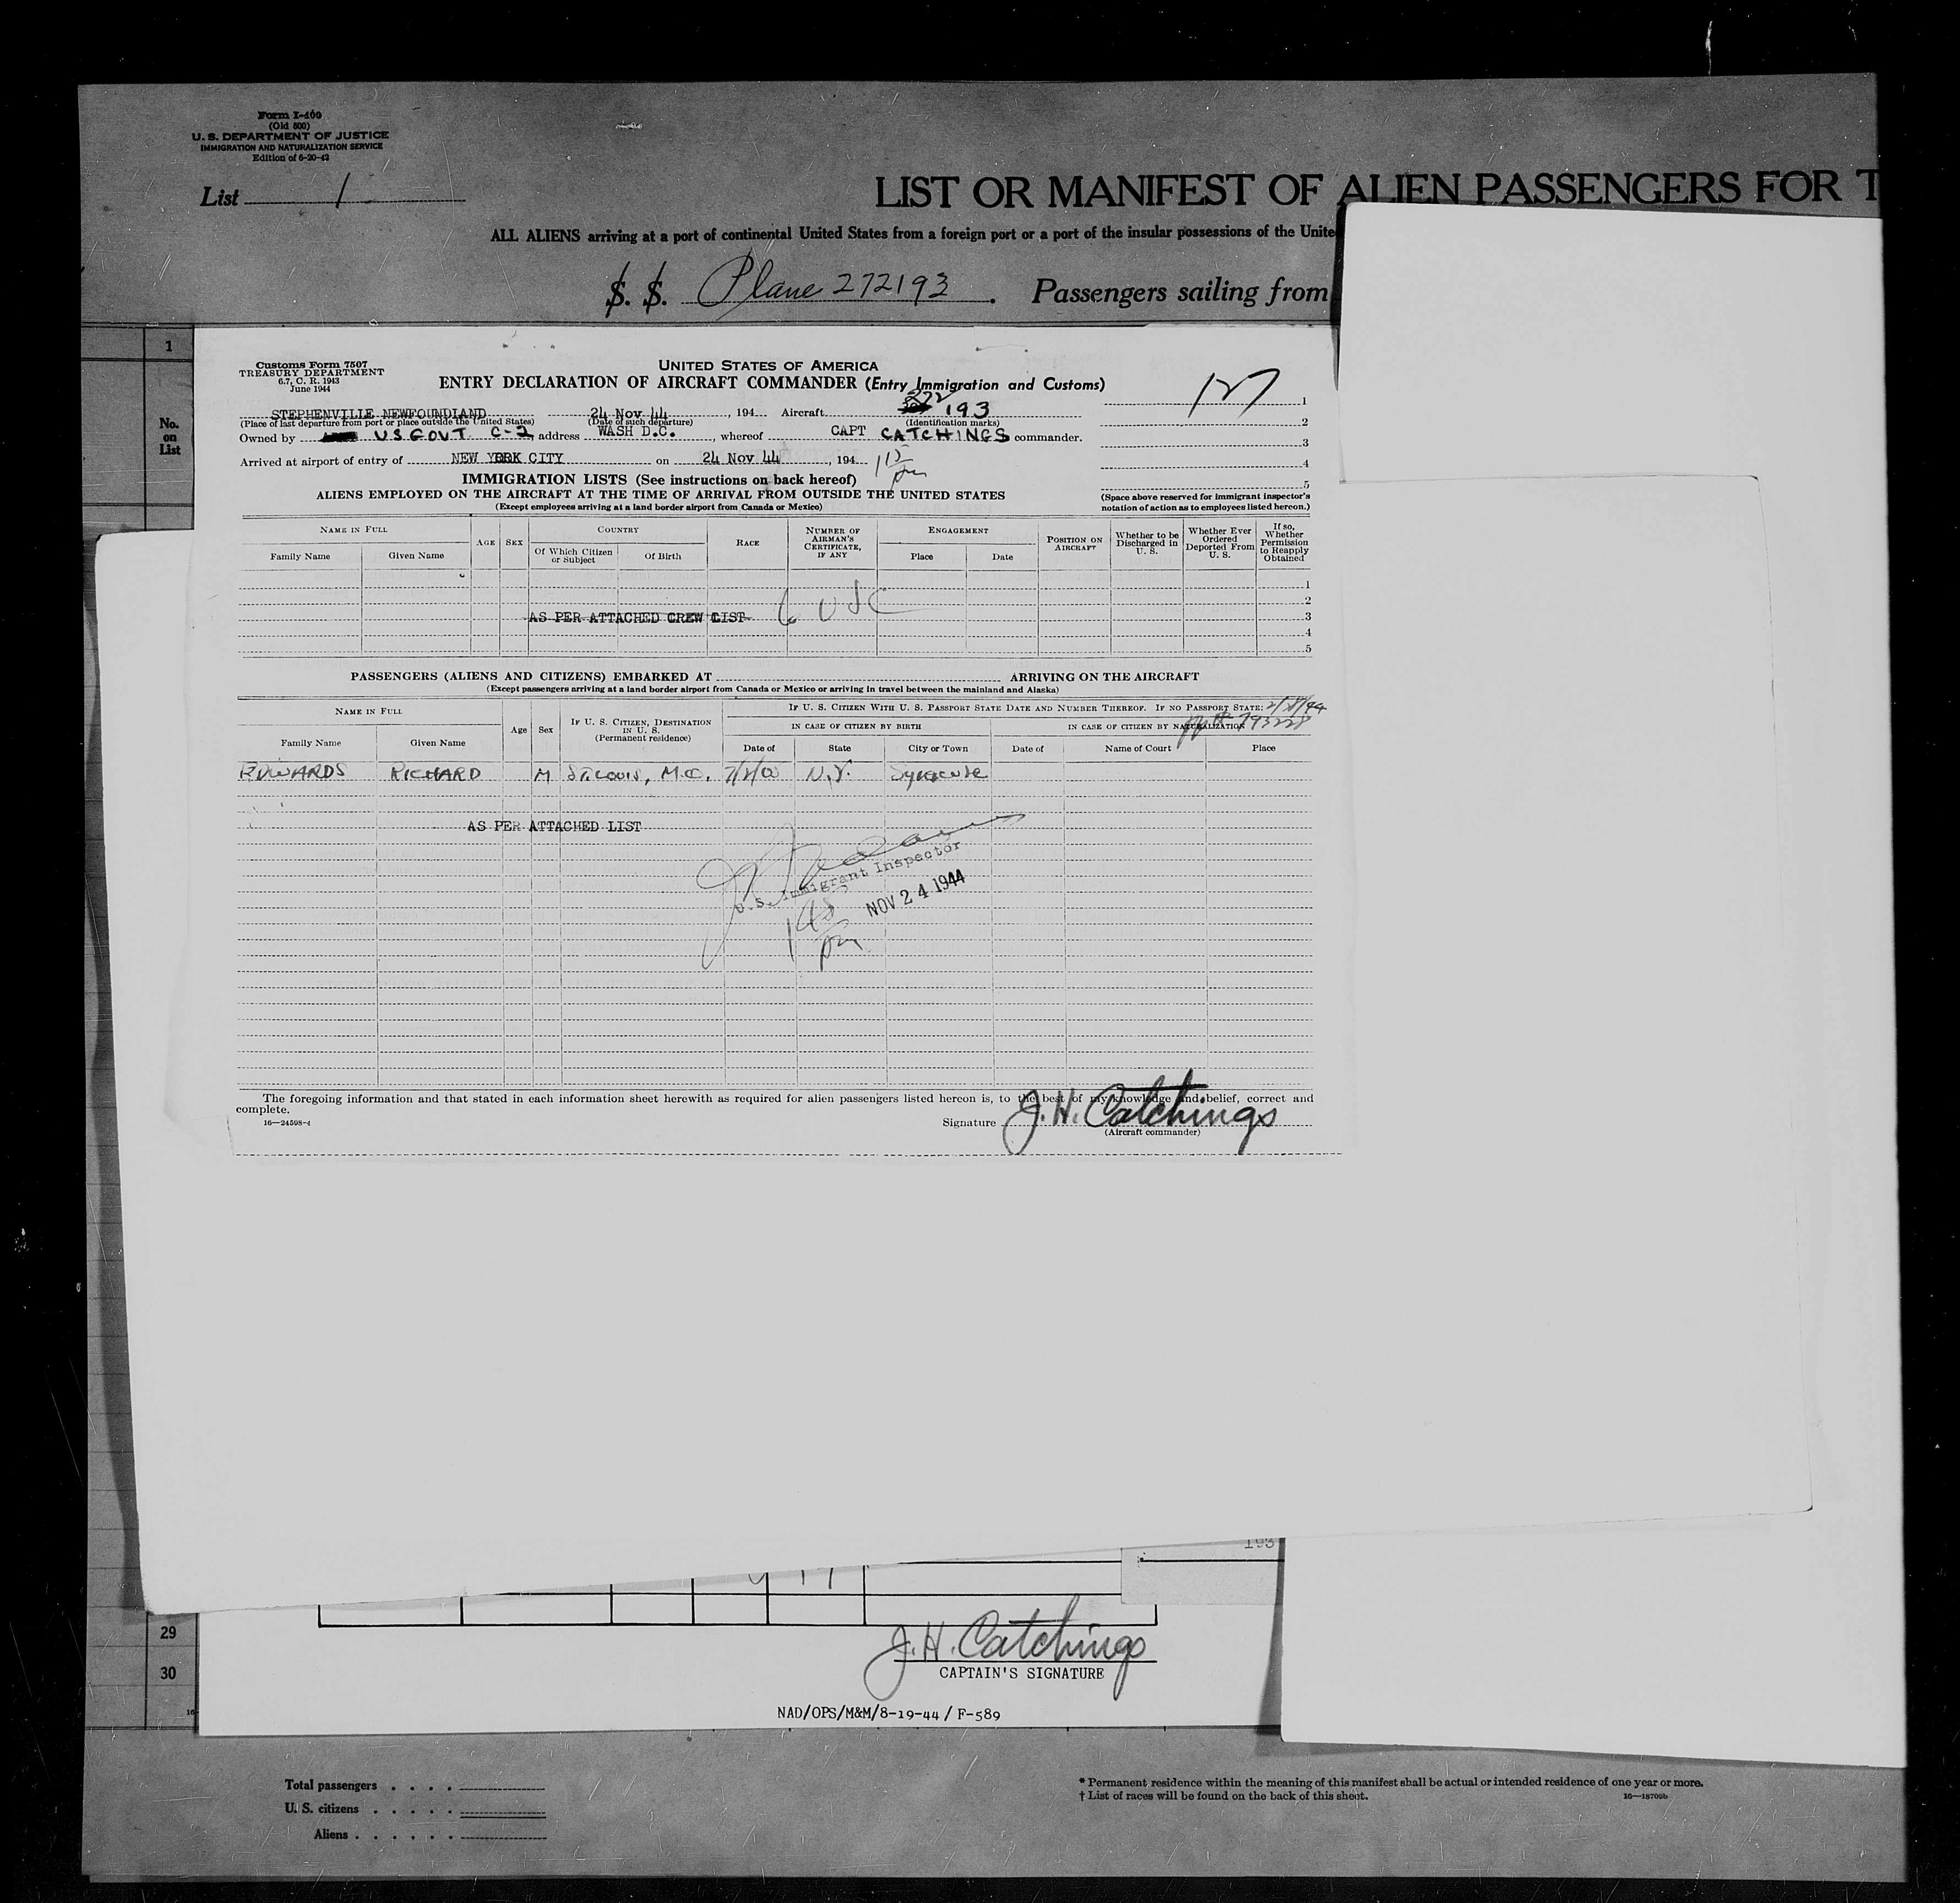 Form I-400
(Old 500)
U. S. DEPARTMENT OF JUSTICE
IMMIGRATION AND NATURALIZATION SERVICE
Edition of 6-20-42
List 1
LIST OR MANIFEST OF ALIEN PASSENGERS FOR T
ALL ALIENS arriving at a port of continental United States from a foreign port or a port of the insular possessions of the Unite
S. S. Plane 272193. Passengers sailing from
1
No. on List
Customs Form 7507
TREASURY DEPARTMENT
6.7, C. R. 1943
June 1944
UNITED STATES OF AMERICA
ENTRY DECLARATION OF AIRCRAFT COMMANDER (Entry Immigration and Customs)
STEPHENVILLE NEWFOUNDLAND 24 Nov 44, 194 Aircraft 272 193 1
(Place of last departure from port or place outside the United States) (Date of such departure) (Identification marks) 2
Owned by US GOVT C-2 address WASH D.C., whereof CAPT CATCHINGS commander. 3
Arrived at airport of entry of NEW YORK CITY on 24 Nov 44, 194 1 15 pm 4
IMMIGRATION LISTS (See instructions on back hereof) 5
ALIENS EMPLOYED ON THE AIRCRAFT AT THE TIME OF ARRIVAL FROM OUTSIDE THE UNITED STATES
(Except employees arriving at a land border airport from Canada or Mexico)
(Space above reserved for immigrant inspector's notation of action as to employees listed hereon.)
NAME IN FULL
Family Name Given Name
AGE SEX
COUNTRY
Of Which Citizen or Subject Of Birth
RACE
NUMBER OF AIRMAN'S CERTIFICATE, IF ANY
ENGAGEMENT
Place Date
POSITION ON AIRCRAFT
Whether to be Discharged in U. S.
Whether Ever Ordered Deported From U. S.
If so, Whether Permission to Reapply Obtained
1
2
AS PER ATTACHED CREW LIST 6 USC 3
4
5
PASSENGERS (ALIENS AND CITIZENS) EMBARKED AT ARRIVING ON THE AIRCRAFT
(Except passengers arriving at a land border airport from Canada or Mexico or arriving in travel between the mainland and Alaska)
NAME IN FULL
Family Name Given Name
Age Sex
IF U. S. CITIZEN, DESTINATION IN U. S. (Permanent residence)
IF U. S. CITIZEN WITH U. S. PASSPORT STATE DATE AND NUMBER THEREOF. IF NO PASSPORT STATE:
IN CASE OF CITIZEN BY BIRTH IN CASE OF CITIZEN BY NATURALIZATION
Date of State City or Town Date of Name of Court Place
EDWARDS RICHARD M ST. LOUIS, M.O. N.Y. Syracuse
AS PER ATTACHED LIST
U. S. Immigrant Inspector
NOV 24 1944
pm
The foregoing information and that stated in each information sheet herewith as required for alien passengers listed hereon is, to the best of my knowledge and belief, correct and
complete.
16—24598-4
Signature J. H. Catchings
(Aircraft commander)
193
29
30
J. H. Catchings
CAPTAIN'S SIGNATURE
NAD/OPS/M&M/8-19-44 / F-589
16
Total passengers
U. S. citizens
Aliens
* Permanent residence within the meaning of this manifest shall be actual or intended residence of one year or more.
† List of races will be found on the back of this sheet.
16—18700b